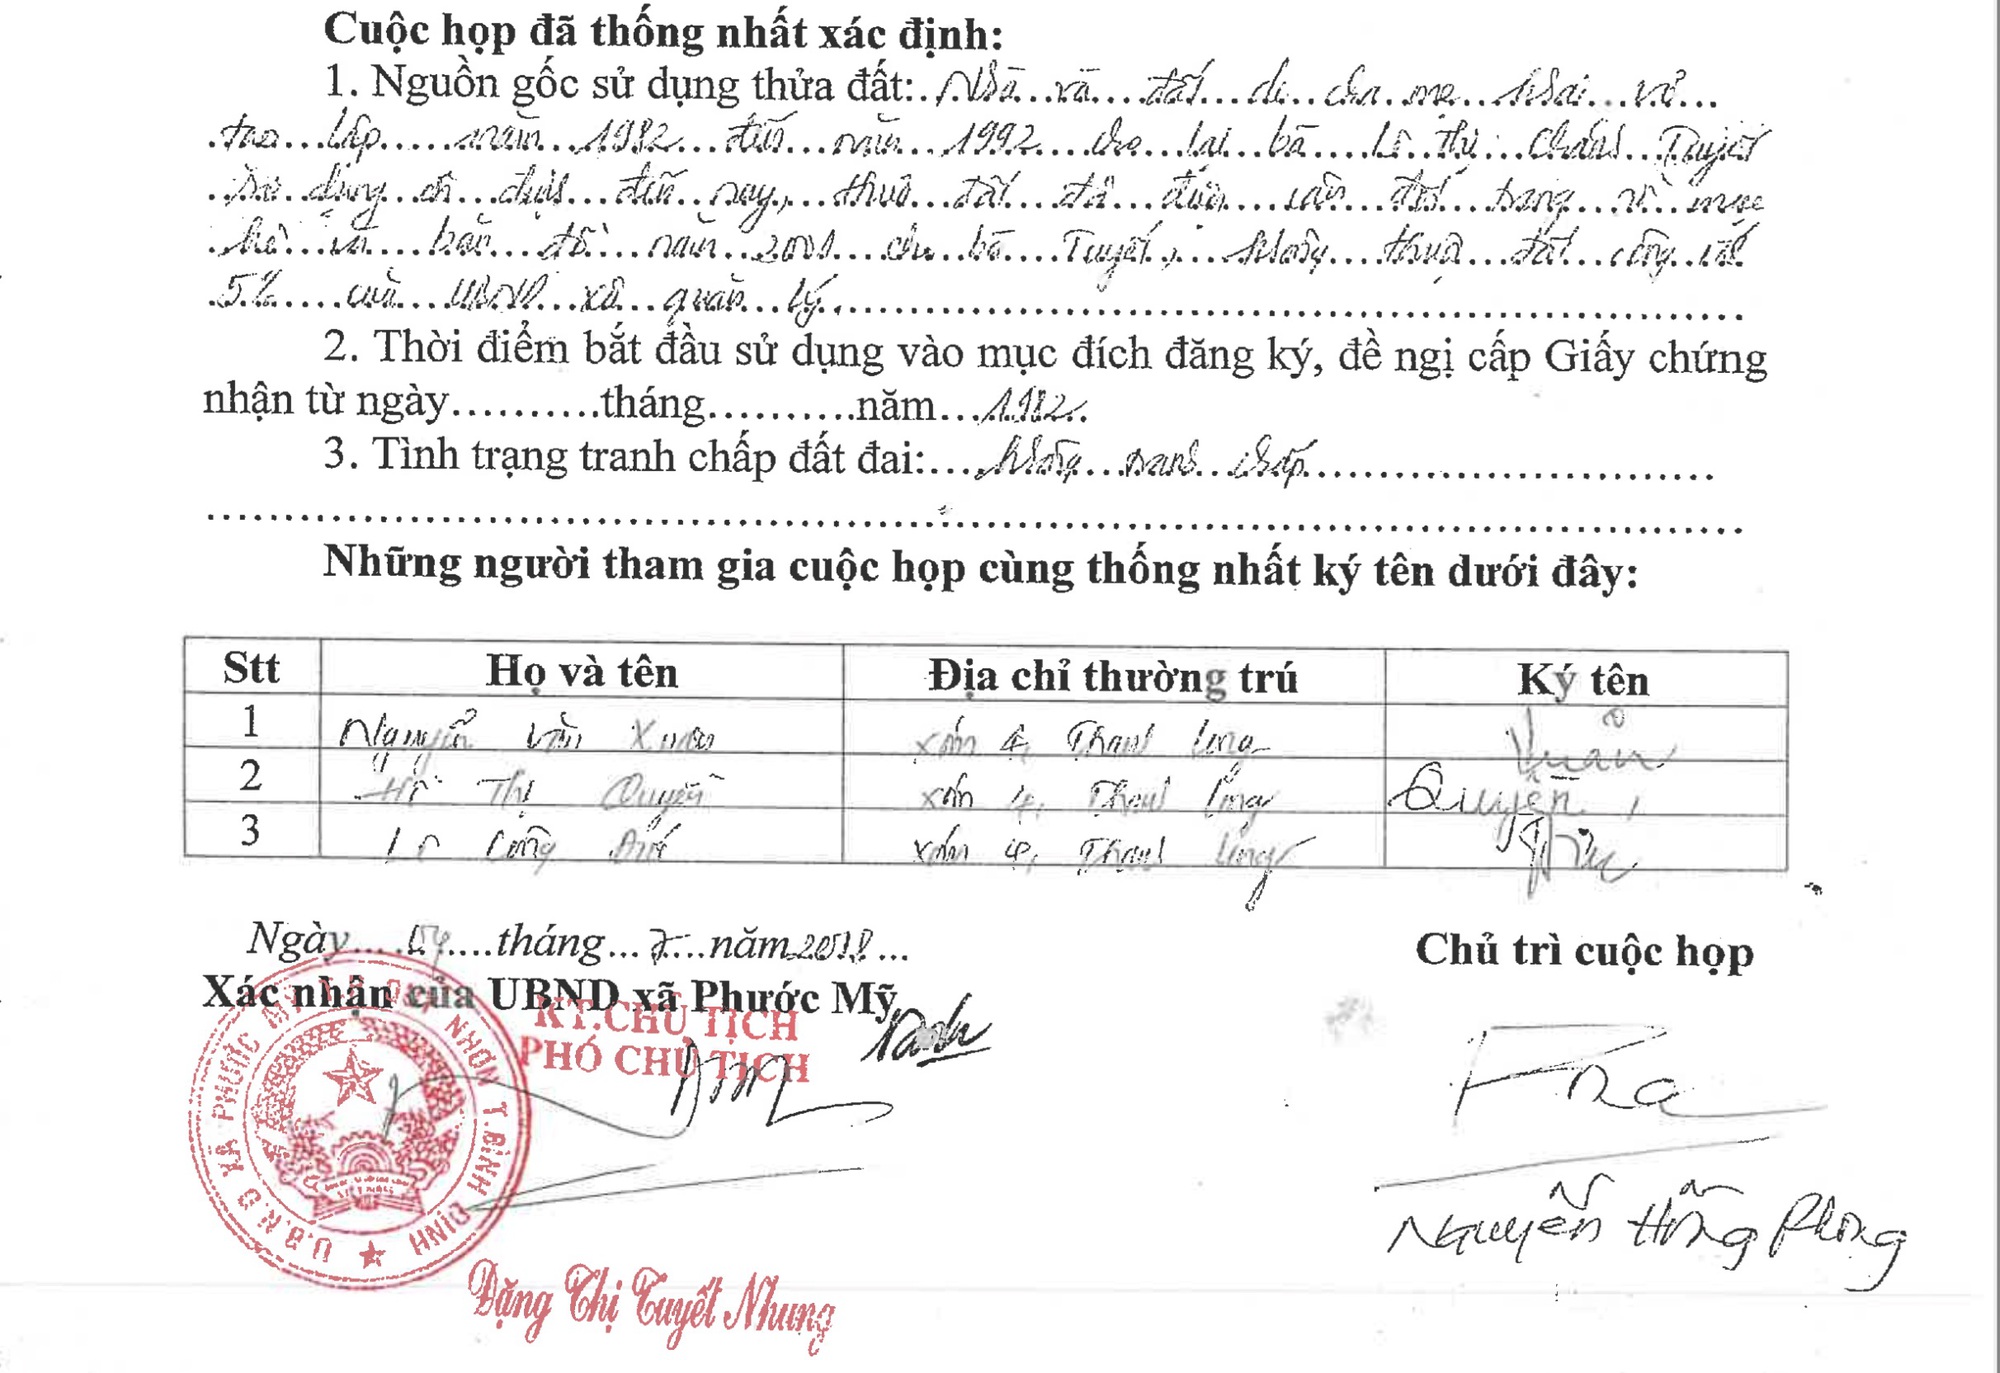 Cuộc họp đã thống nhất xác định:
1. Nguồn gốc sử dụng thửa đất: Nhà và đất do cha mẹ khai vỡ
tạo lập năm 1982 đến năm 1992 cho lại bà Lê Thị Chánh Tuyết
sử dụng ổn định đến nay, thửa đất đã được
bản đồ năm 2001 cho bà Tuyết, không thuộc đất công ích
5% của UBND xã quản lý.
2. Thời điểm bắt đầu sử dụng vào mục đích đăng ký, đề ngị cấp Giấy chứng
nhận từ ngày..........tháng..........năm...1982.
3. Tình trạng tranh chấp đất đai:....không tranh chấp
Những người tham gia cuộc họp cùng thống nhất ký tên dưới đây:
Stt Họ và tên Địa chỉ thường trú Ký tên
1 Nguyễn Văn Xuân xóm 4, Thanh Long Xuân
2 Hồ Thị Quyền xóm 4, Thanh Long Quyền
3 Lê Công xóm 4, Thanh Long
Ngày 04 tháng 7 năm 2018
Chủ trì cuộc họp
Xác nhận của UBND xã Phước Mỹ
KT.CHỦ TỊCH
PHÓ CHỦ TỊCH
U.B.N.D XÃ PHƯỚC MỸ T.P QUY NHƠN T.BÌNH ĐỊNH
VIỆT NAM
Nguyễn Hồng Phong
Đặng Thị Tuyết Nhung